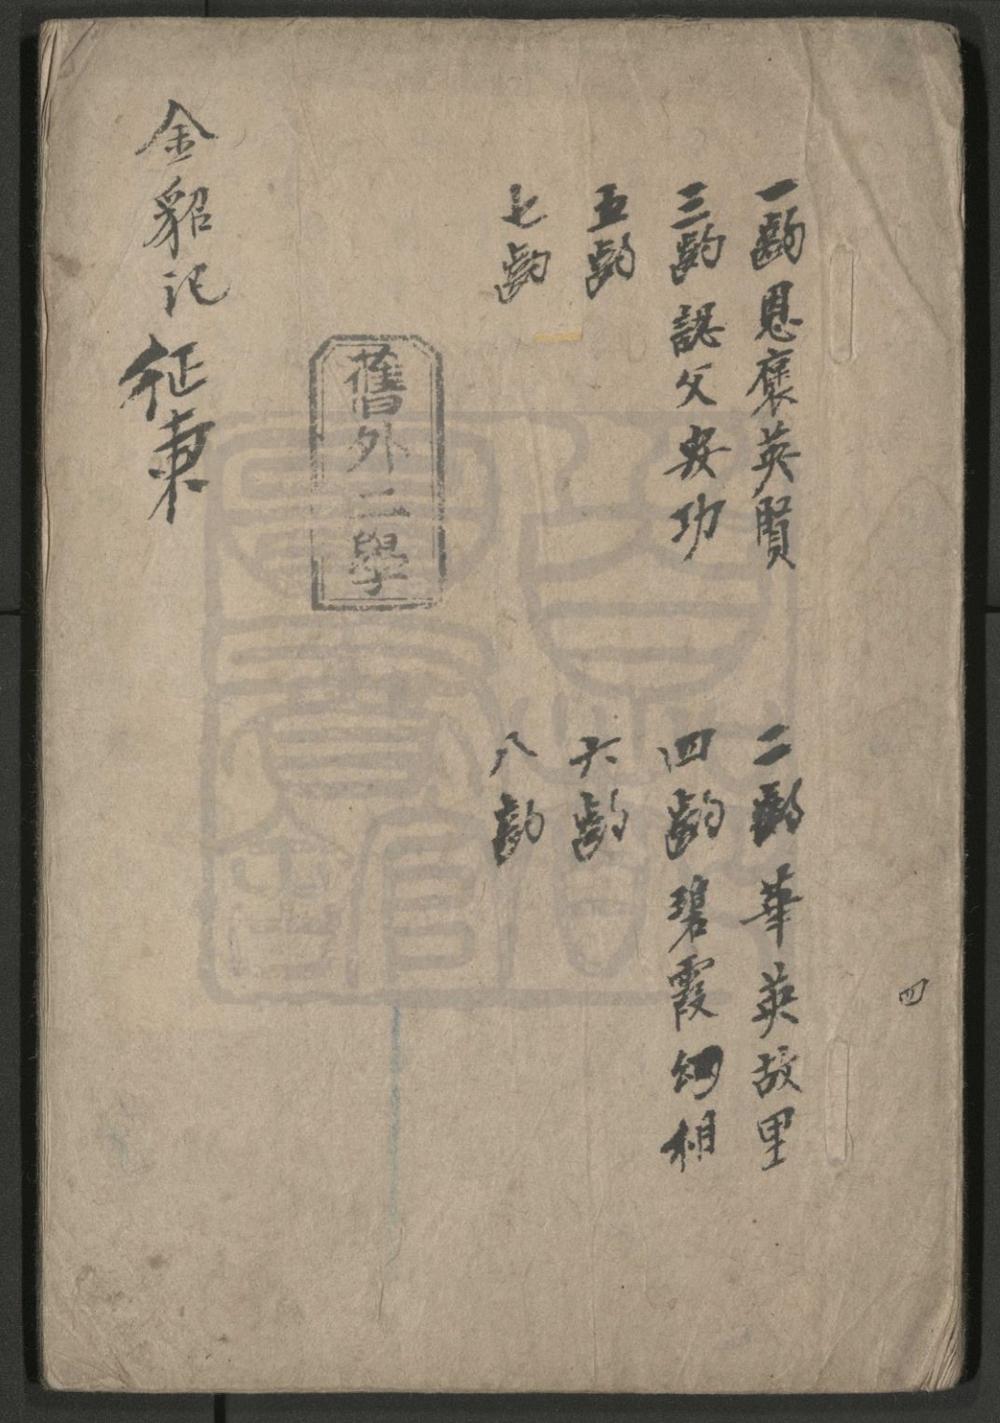 四
一齣 恩褒英賢
二齣 華英故里
三齣 認父 功
四齣 碧霞幻相
五齣
六齣
七齣
八齣
舊外二學
金貂記 征東